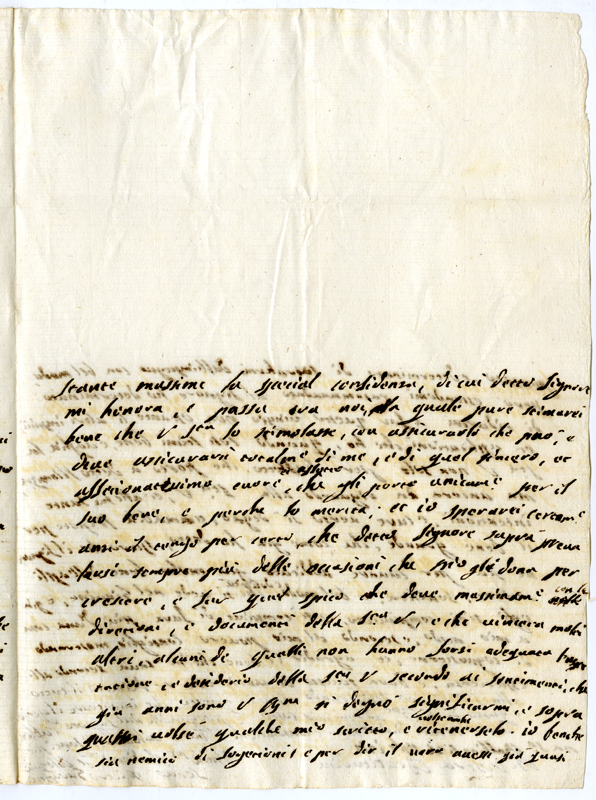 stante massime la special confidenza, di cui detto Signore
mi honora, e passa tra noi, la quale pure stimarei
bene che V Sria lo stimolasse, con assicurarlo che può, e
deve assicurarsi totalme di me, e di quel sincero, et
affetionatissimo cuore, che gli porto unicame per il
suo bene, e perche lo merita; et io sperarei certame
anzi il tengo per certo, che detto Signore saprà preva
lersi sempre più delle occasioni che Dio gli dona per
crescere, e far gran che deve massimame
direttioni, e documenti della Sria V, e che vincerà molti
altri, alcuni de quali non hanno forsi adequata
tatione e desiderio della Sria V secondo ai sentimenti, che
già anni sono V si degnò significarmi, e sopra
qualche mio scritto, e ritenerselo. io benche
sia nemico di e per dir il vero quasi